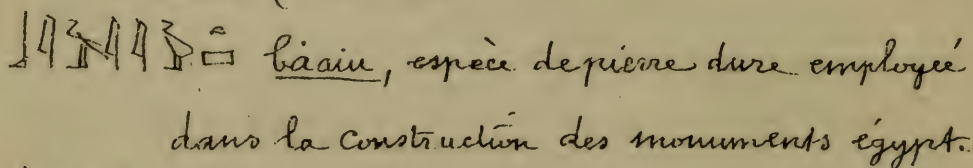 báaiu, espèce de pierre dure employée
dans la construction des monuments égypt.